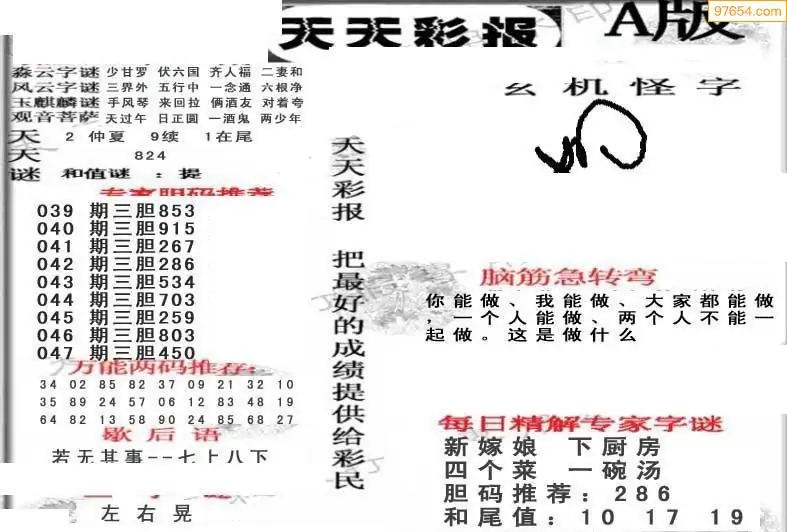 天天彩报
A版
97654.com
森云字谜 少甘罗 伏六国 齐人福 二妻和
风云字谜 三界外 五行中 一念通 六根净
玉麒麟谜 手风琴 来回拉 俩酒友 对着夸
观音菩萨 天过午 日正圆 一酒鬼 两少年
天 2 仲夏 9续 1在尾
天 824
谜 和值谜 : 提
专家胆码推荐
039 期三胆853
040 期三胆915
041 期三胆267
042 期三胆286
043 期三胆534
044 期三胆703
045 期三胆259
046 期三胆803
047 期三胆450
万能两码推荐:
34 02 85 82 37 09 21 32 10
35 89 24 57 06 12 83 48 19
64 82 13 58 90 24 85 68 27
歇后语
若无其事--七上八下
左右晃
天天彩报 把最好的成绩提供给彩民
玄机怪字
脑筋急转弯
你能做、我能做、大家都能做
,一个人能做、两个人不能一
起做。这是做什么
每日精解专家字谜
新嫁娘 下厨房
四个菜 一碗汤
胆码推荐:286
和尾值:10 17 19